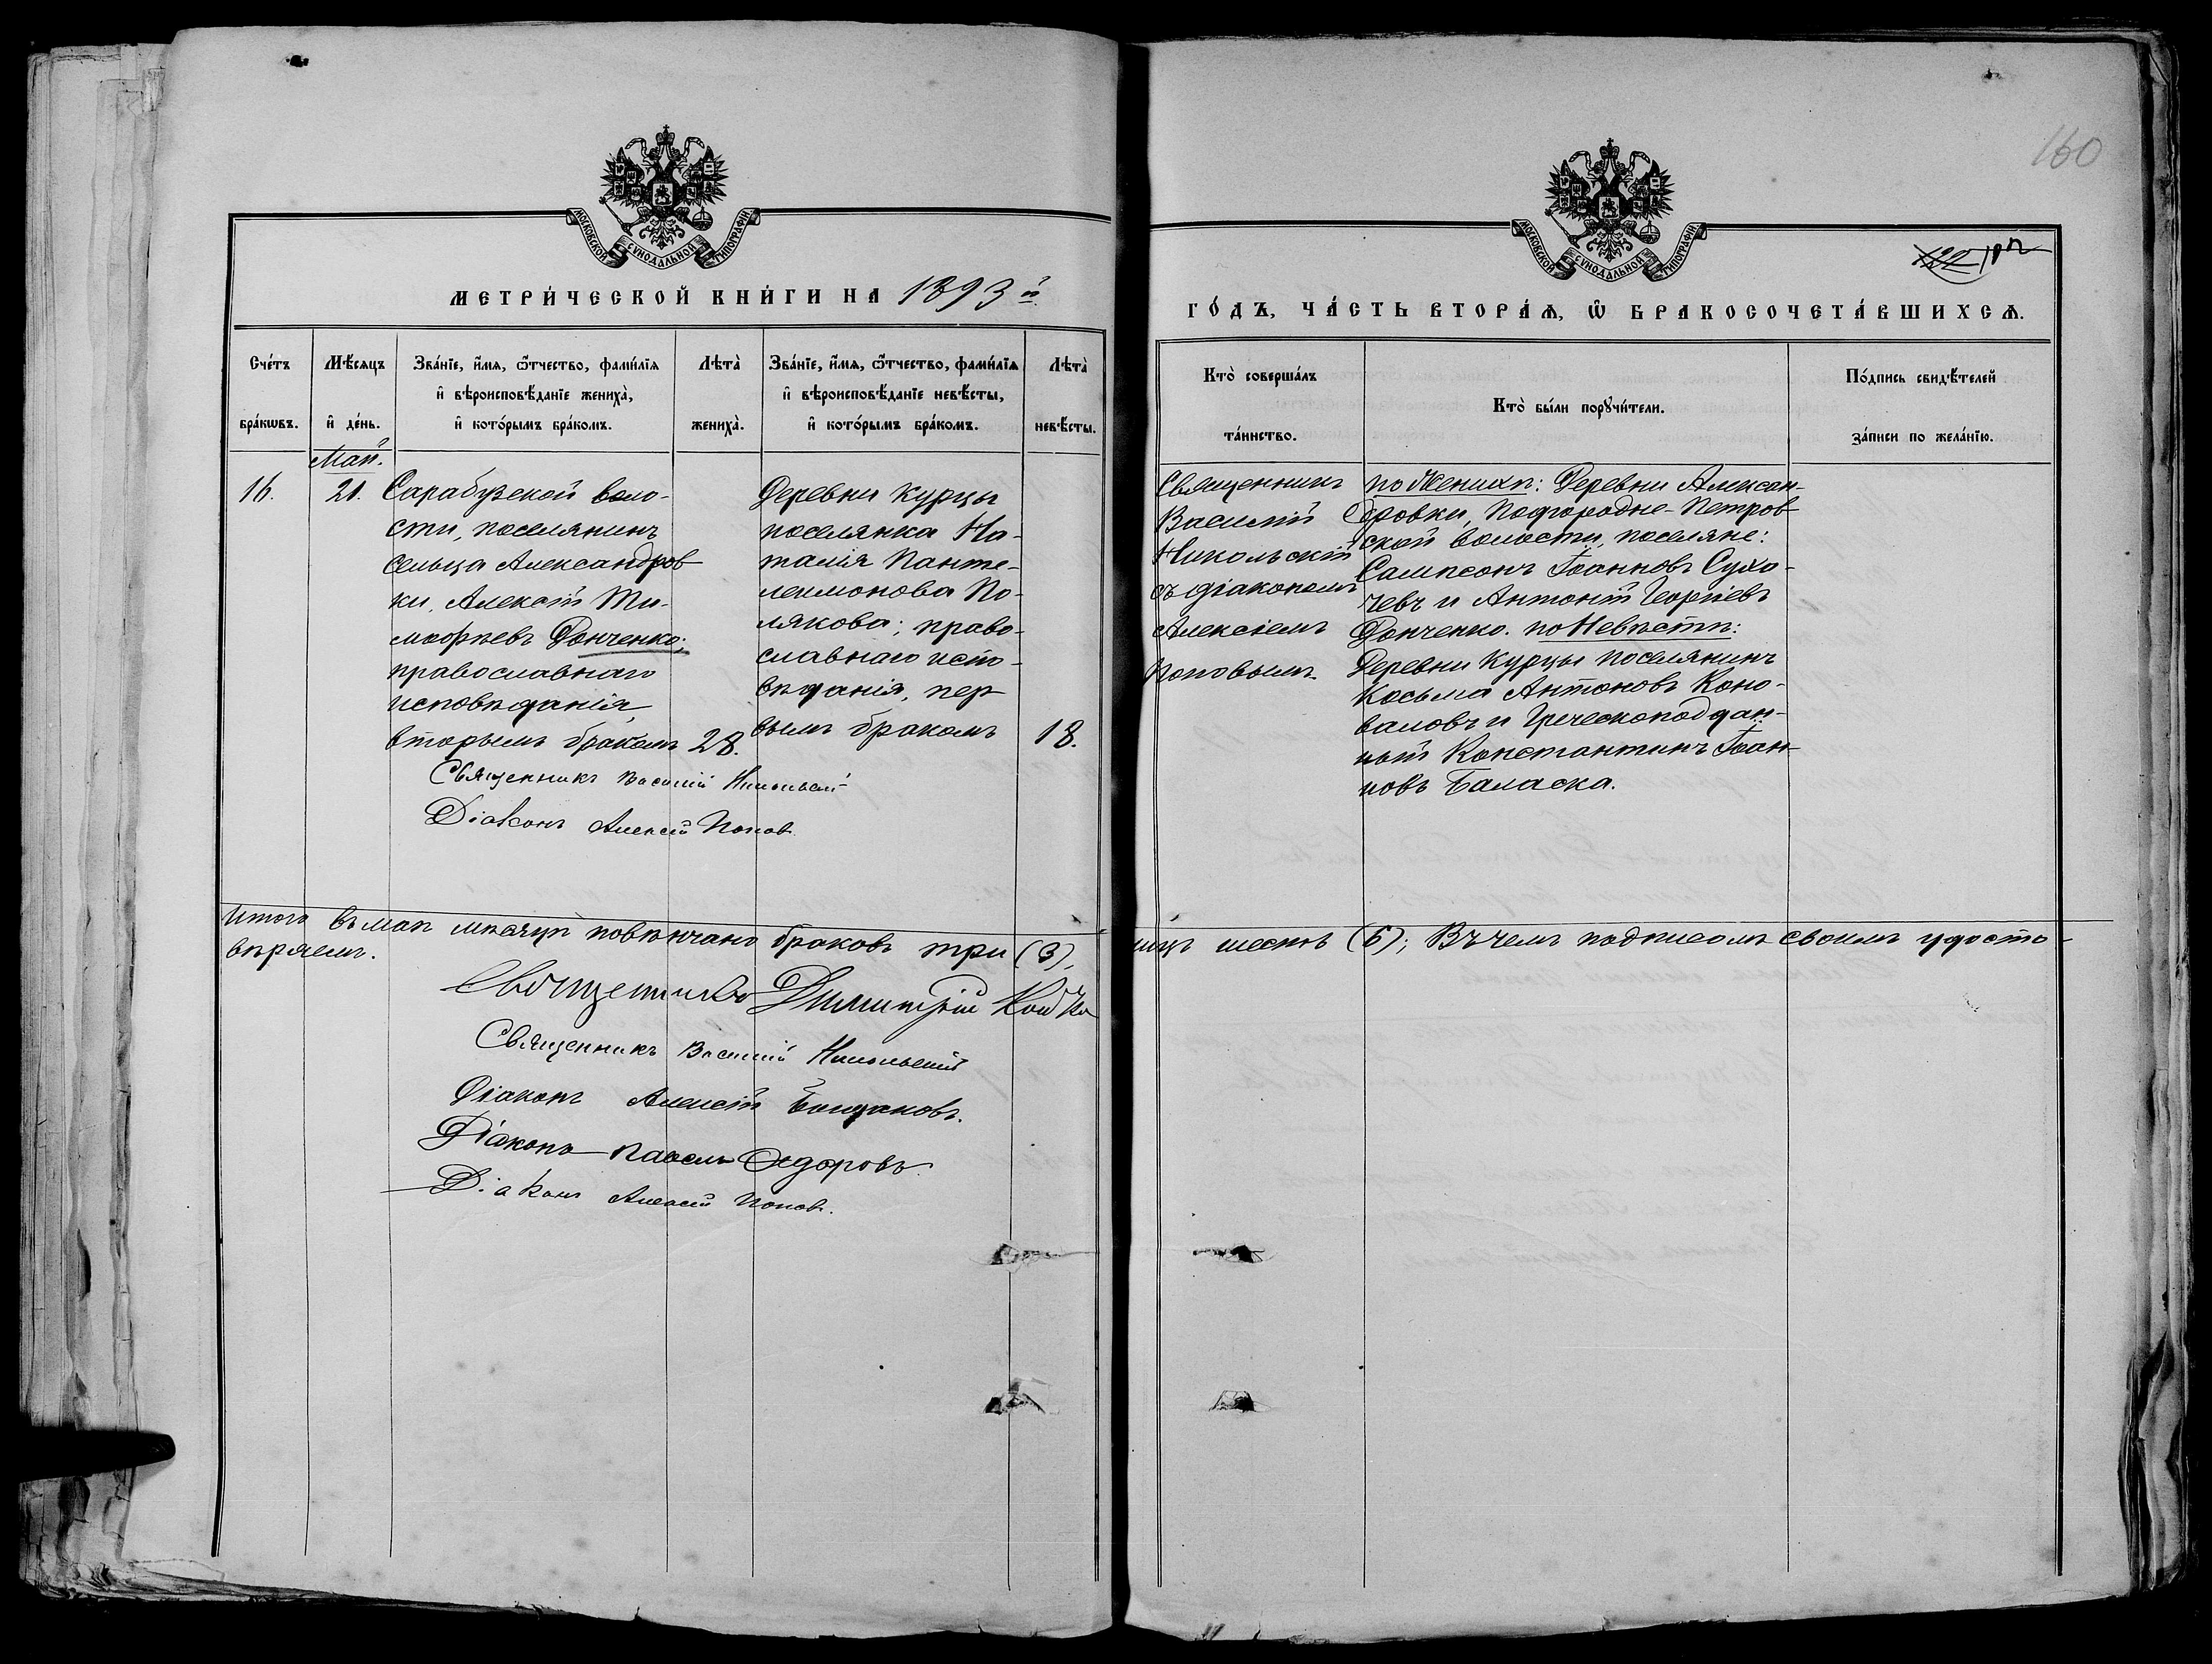 160
МОСКОВСКОЙ СѴНОДАЛЬНОЙ ТИПОГРАФІИ
МОСКОВСКОЙ СѴНОДАЛЬНОЙ ТИПОГРАФІИ
МЕТРИ́ЧЕСКОЙ КНИ́ГИ НА 1893 й
ГО́ДЪ, ЧА́СТЬ ВТОРА́Ѧ, Ѿ БРАКОСОЧЕТА́ВШИХСѦ.
Сче́тъ бра́кѡвъ.
Мѣ́сяцъ и҆ де́нь.
Зва́нїе, и҆́мѧ, ѻ҆́тчество, фами́лїѧ
и҆ вѣроисповѣ́данїе жениха̀,
и҆ кото́рымъ бра́комъ.
Лѣта̀ жениха̀.
Зва́нїе, и҆́мѧ, ѻ҆́тчество, фами́лїѧ
и҆ вѣроисповѣ́данїе невѣ́сты,
и҆ кото́рымъ бра́комъ.
Лѣта̀ невѣ́сты.
Кто̀ соверша́лъ
та́инство.
Кто̀ бы́ли порꙋчи́тели.
По́дпись свидѣ́телей
за́писи по жела́нїю.
Май.
16.
21.
Сарабузской воло-
сти, поселянинъ
сельца Александров
ки, Алексѣй Ти-
мофѣевъ Донченко;
православнаго
исповѣданія,
вторымъ бракомъ
28.
Деревни Курцы
поселянка На-
талія Панте-
леимонова По-
лякова; право-
славнаго испо-
вѣданія, пер
вымъ бракомъ
18.
Священникъ
Василій
Никольскій
съ діакономъ
Алексіемъ
Поповымъ.
по Женихѣ: Деревни Алексан-
дровки, Подгородне-Петров
ской волости, поселяне:
Сампсонъ Іоанновъ Сухо-
чевъ и Антоній Георгіевъ
Донченко. по Невѣстѣ:
Деревни Курцы поселянинъ
Косьма Антоновъ Коно-
валовъ и Греческоподдан-
ный Константинъ Іоан-
новъ Баласка.
Священникъ Василій Никольскій
Діаконъ Алексѣй Попов
Итого въ маѣ мѣсяцѣ повѣнчано браковъ три (3),
лицъ шесть (6); Въ чемъ подписомъ своимъ удосто-
вѣряемъ.
Священникъ Димитрій Койко
Священникъ Василій Никольскій
Діаконъ Алексѣй Богдановъ.
Діаконъ Павелъ Ѳедоровъ.
Діаконъ Алексѣй Попов.